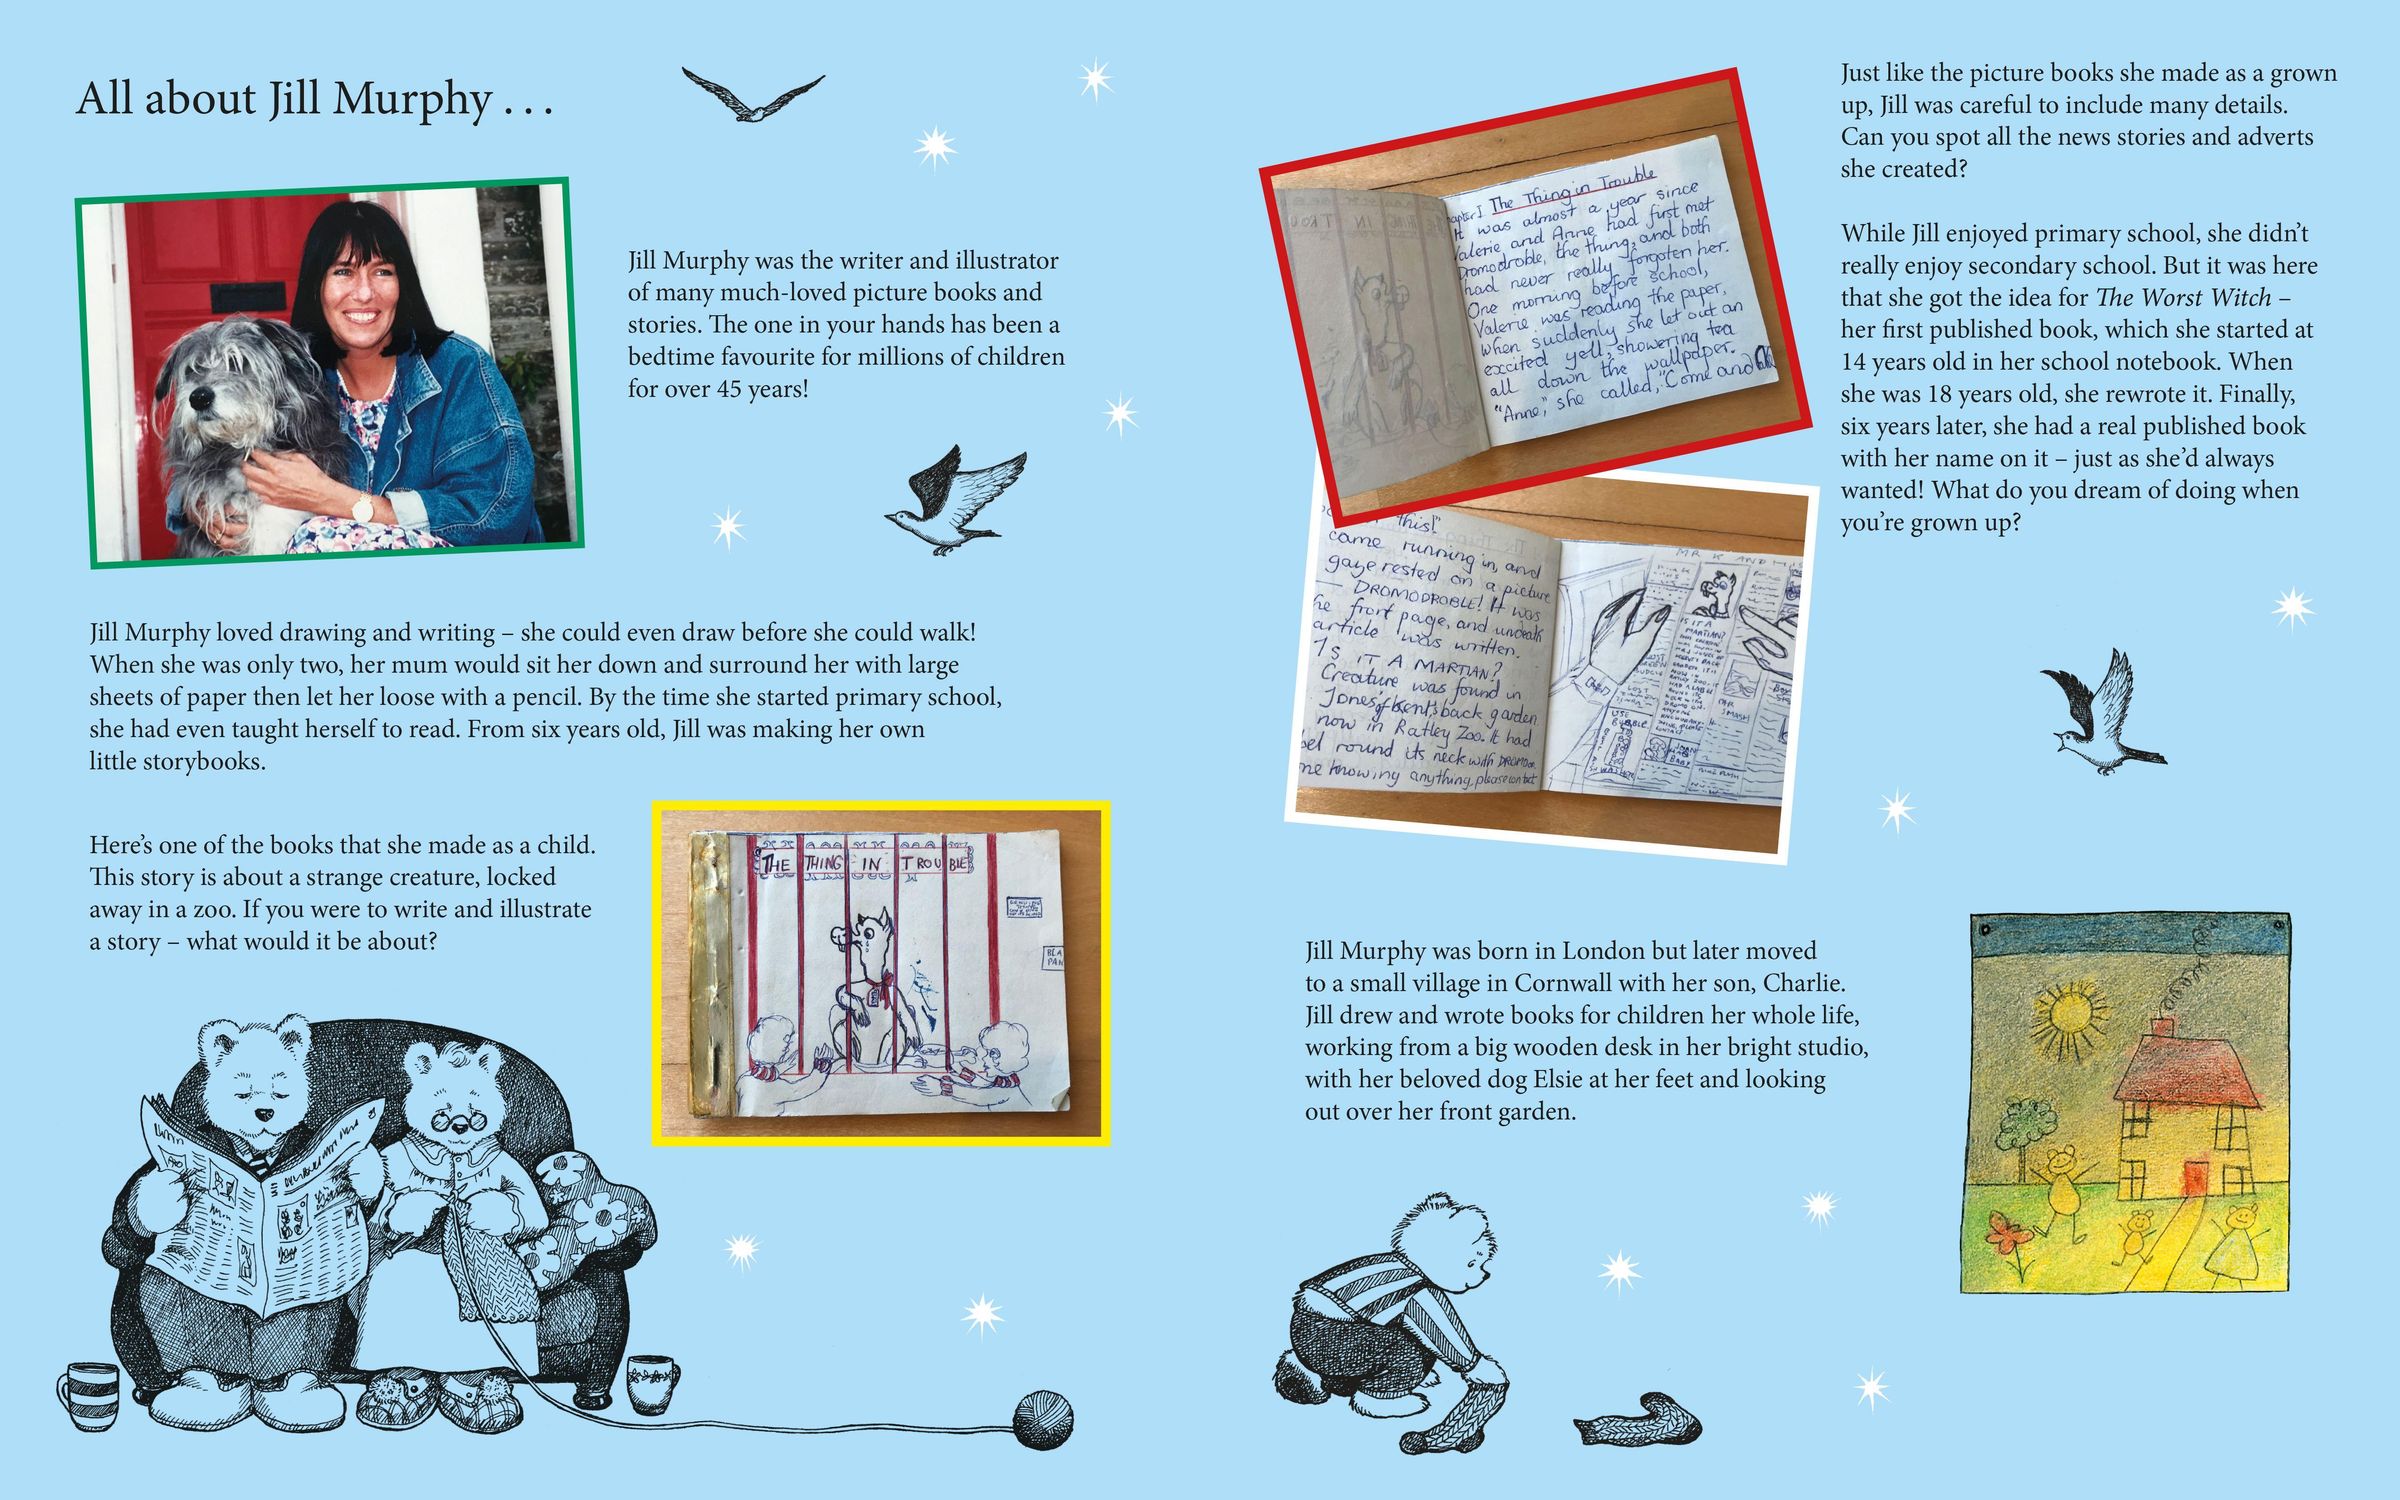 All about Jill Murphy . . .
Jill Murphy was the writer and illustrator
of many much-loved picture books and
stories. The one in your hands has been a
bedtime favourite for millions of children
for over 45 years!
Jill Murphy loved drawing and writing – she could even draw before she could walk!
When she was only two, her mum would sit her down and surround her with large
sheets of paper then let her loose with a pencil. By the time she started primary school,
she had even taught herself to read. From six years old, Jill was making her own
little storybooks.
Here’s one of the books that she made as a child.
This story is about a strange creature, locked
away in a zoo. If you were to write and illustrate
a story – what would it be about?
THE THING IN TROUBLE
BLA
PAN
apter I The Thing in Trouble
It was almost a year since
Valerie and Anne had first met
Dromodroble, the thing, and both
had never really forgoten her.
One morning before school,
Valerie was reading the paper,
when suddenly she let out an
excited yell, showering tea
all down the wallpaper.
"Anne," she called, "Come and
this!"
came running in, and
gaze rested on a picture
— DROMODROBLE! It was
he front page, and
article was written.
Is IT A MARTIAN?
Creature was found in
Jones' of Kent's back garden
now in Ratley Zoo. It had
bel round its neck with
ne knowing anything, please
MR K AND
IS IT A
MARTIAN?
Just like the picture books she made as a grown
up, Jill was careful to include many details.
Can you spot all the news stories and adverts
she created?
While Jill enjoyed primary school, she didn’t
really enjoy secondary school. But it was here
that she got the idea for The Worst Witch –
her first published book, which she started at
14 years old in her school notebook. When
she was 18 years old, she rewrote it. Finally,
six years later, she had a real published book
with her name on it – just as she’d always
wanted! What do you dream of doing when
you’re grown up?
Jill Murphy was born in London but later moved
to a small village in Cornwall with her son, Charlie.
Jill drew and wrote books for children her whole life,
working from a big wooden desk in her bright studio,
with her beloved dog Elsie at her feet and looking
out over her front garden.